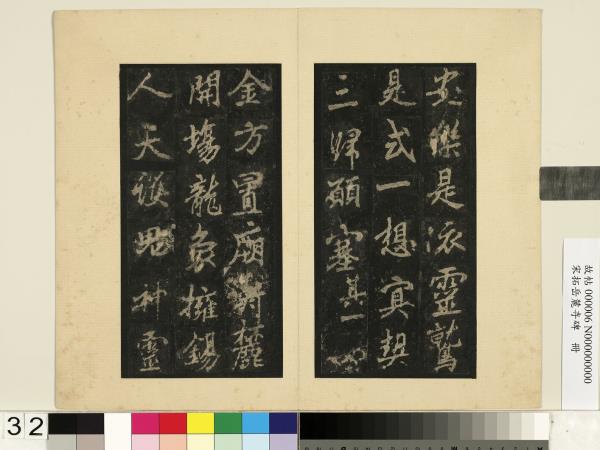 安樂是依靈鷲
是式一想冥契
三歸願塞其一
金方置廟麓
開場龍象擁錫
人天神靈
故帖 000006 N000000000
宋拓岳麓寺碑 冊
32